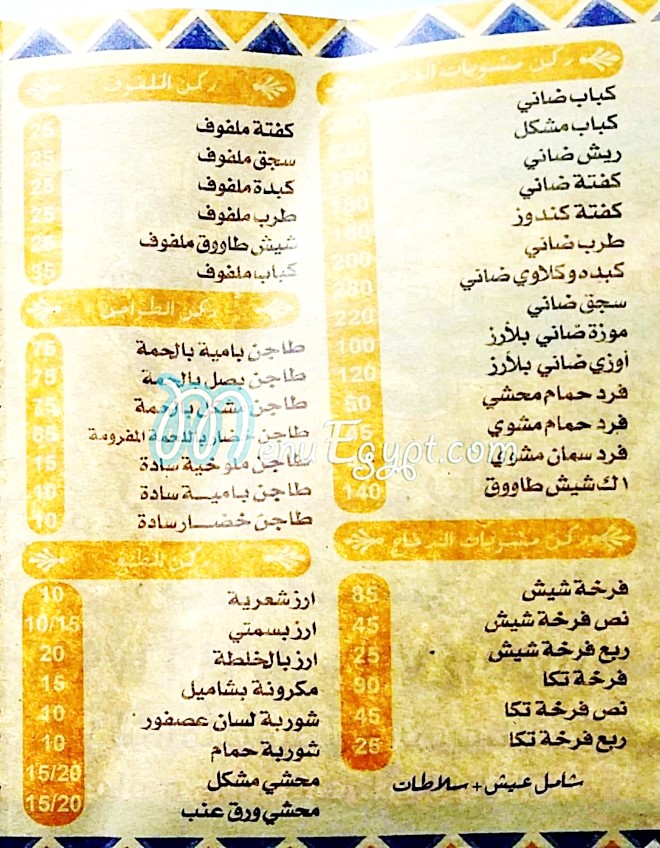 ركن مشويات
كباب ضاني
كباب مشكل
ريش ضاني
كفتة ضاني
كفتة كندوز
طرب ضاني
كبده وكلاوي ضاني 200
سجق ضاني 280
موزة ضاني بلأرز 220
أوزي ضاني بلأرز 100
فرد حمام محشي 120
فرد حمام مشوي
فرد سمان مشوي
1ك شيش طاووق 140
ركن مشويات الدجاج
فرخة شيش 85
نص فرخة شيش 45
ربع فرخة شيش 25
فرخة تكا 90
نص فرخة تكا 45
ربع فرخة تكا 25
شامل عيش + سلاطات
ركن الملفوف
كفتة ملفوف 25
سجق ملفوف 25
كبدة ملفوف 25
طرب ملفوف 25
شيش طاووق ملفوف 25
كباب ملفوف 35
ركن الطواجن
طاجن بامية بالحمة 75
طاجن بصل بالحمة 75
طاجن مشكل بالحمة 75
طاجن خضار باللحمة المفرومة 65
طاجن ملوخية سادة 15
طاجن باميـة سادة 10
طاجن خضـار سادة 10
ركن المطبخ
ارز شعرية 10
ارز بسمتي 10/15
ارز بالخلطة 20
مكرونة بشاميل 15
شوربة لسان عصفور 40
شوربة حمام 10
محشي مشكل 15/20
محشي ورق عنب 15/20
MenuEgypt.com